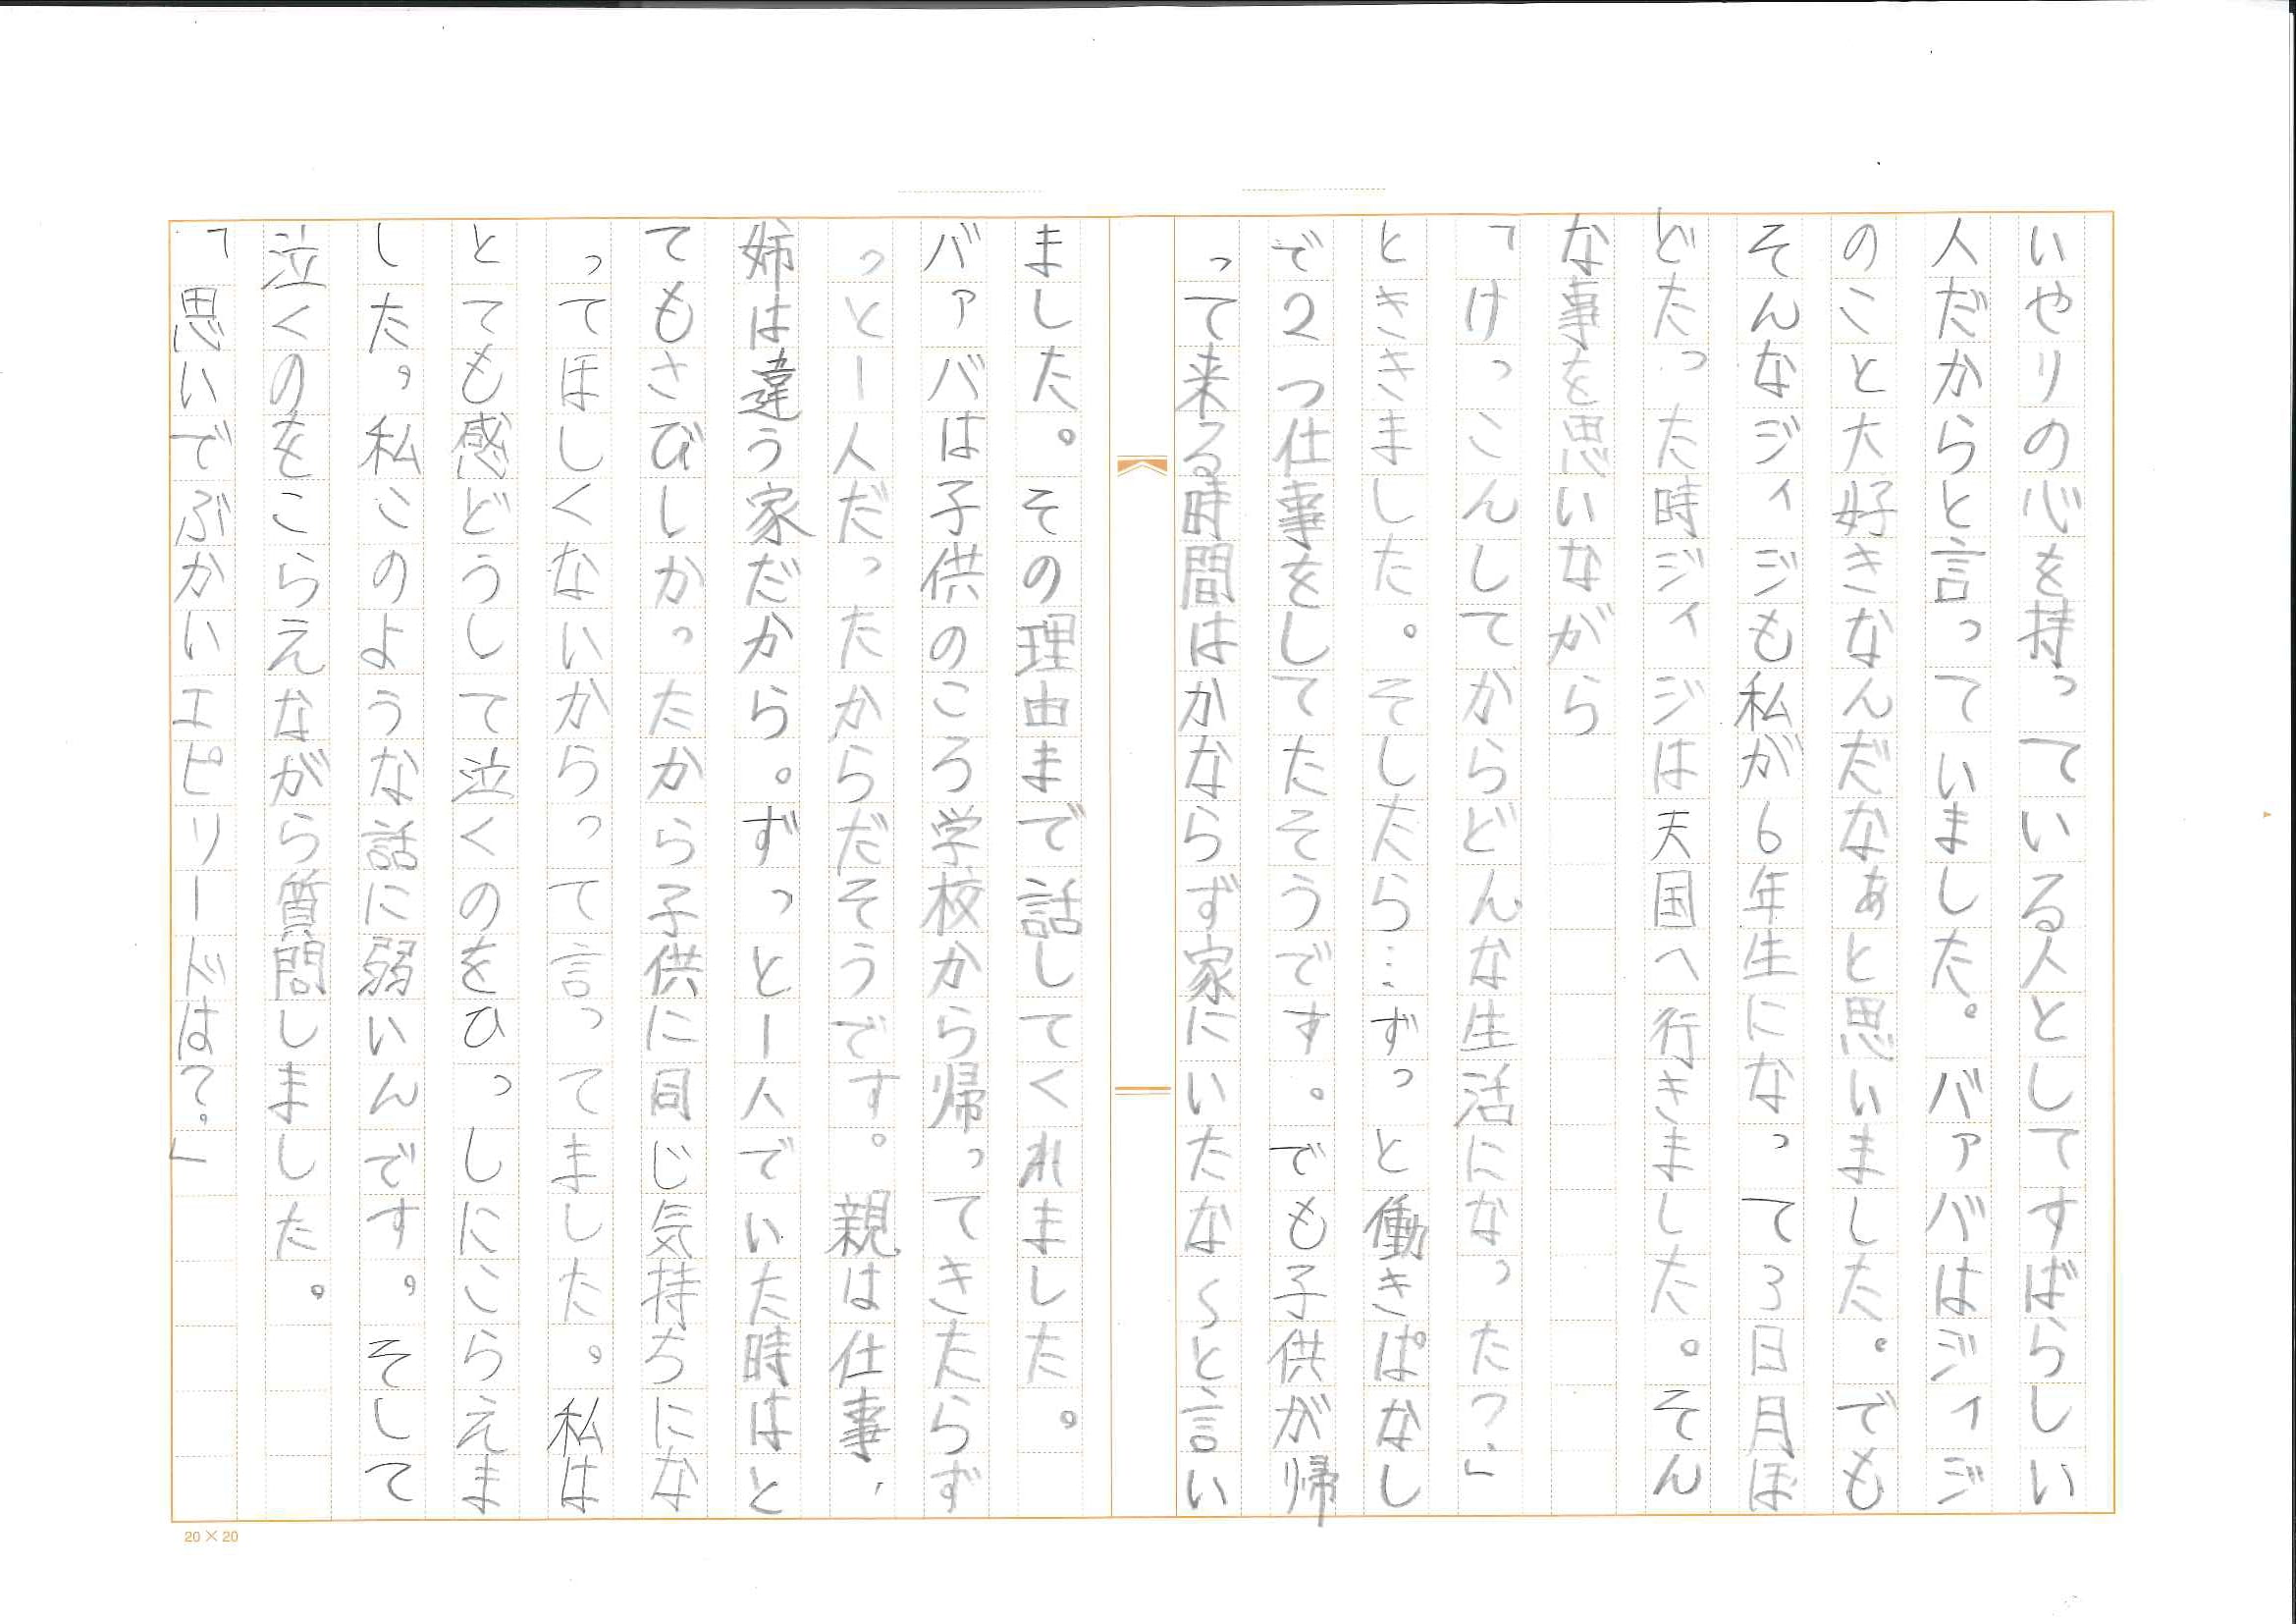 いやりの心を持っている人としてすばらしい
人だからと言っていました。バァバはジィジ
のこと大好きなんだなぁと思いました。でも
そんなジィジも私が6年生になって3日月ほ
どたった時ジィジは天国へ行きました。そん
な事を思いながら
「けっこんしてからどんな生活になった?」
とききました。そしたら…ずっと働きぱなし
で2つ仕事をしてたそうです。でも子供が帰
って来る時間はかならず家にいたな〜と言い
ました。その理由まで話してくれました。
バァバは子供のころ学校から帰ってきたらず
っと一人だったからだそうです。親は仕事、
姉は違う家だから。ずっと一人でいた時はと
てもさびしかったから子供に同じ気持ちにな
ってほしくないからって言ってました。私は
とても感どうして泣くのをひっしにこらえま
した。私このような話に弱いんです。そして
泣くのをこらえながら質問しました。
「思いでぶかいエピリードは?。」
20×20